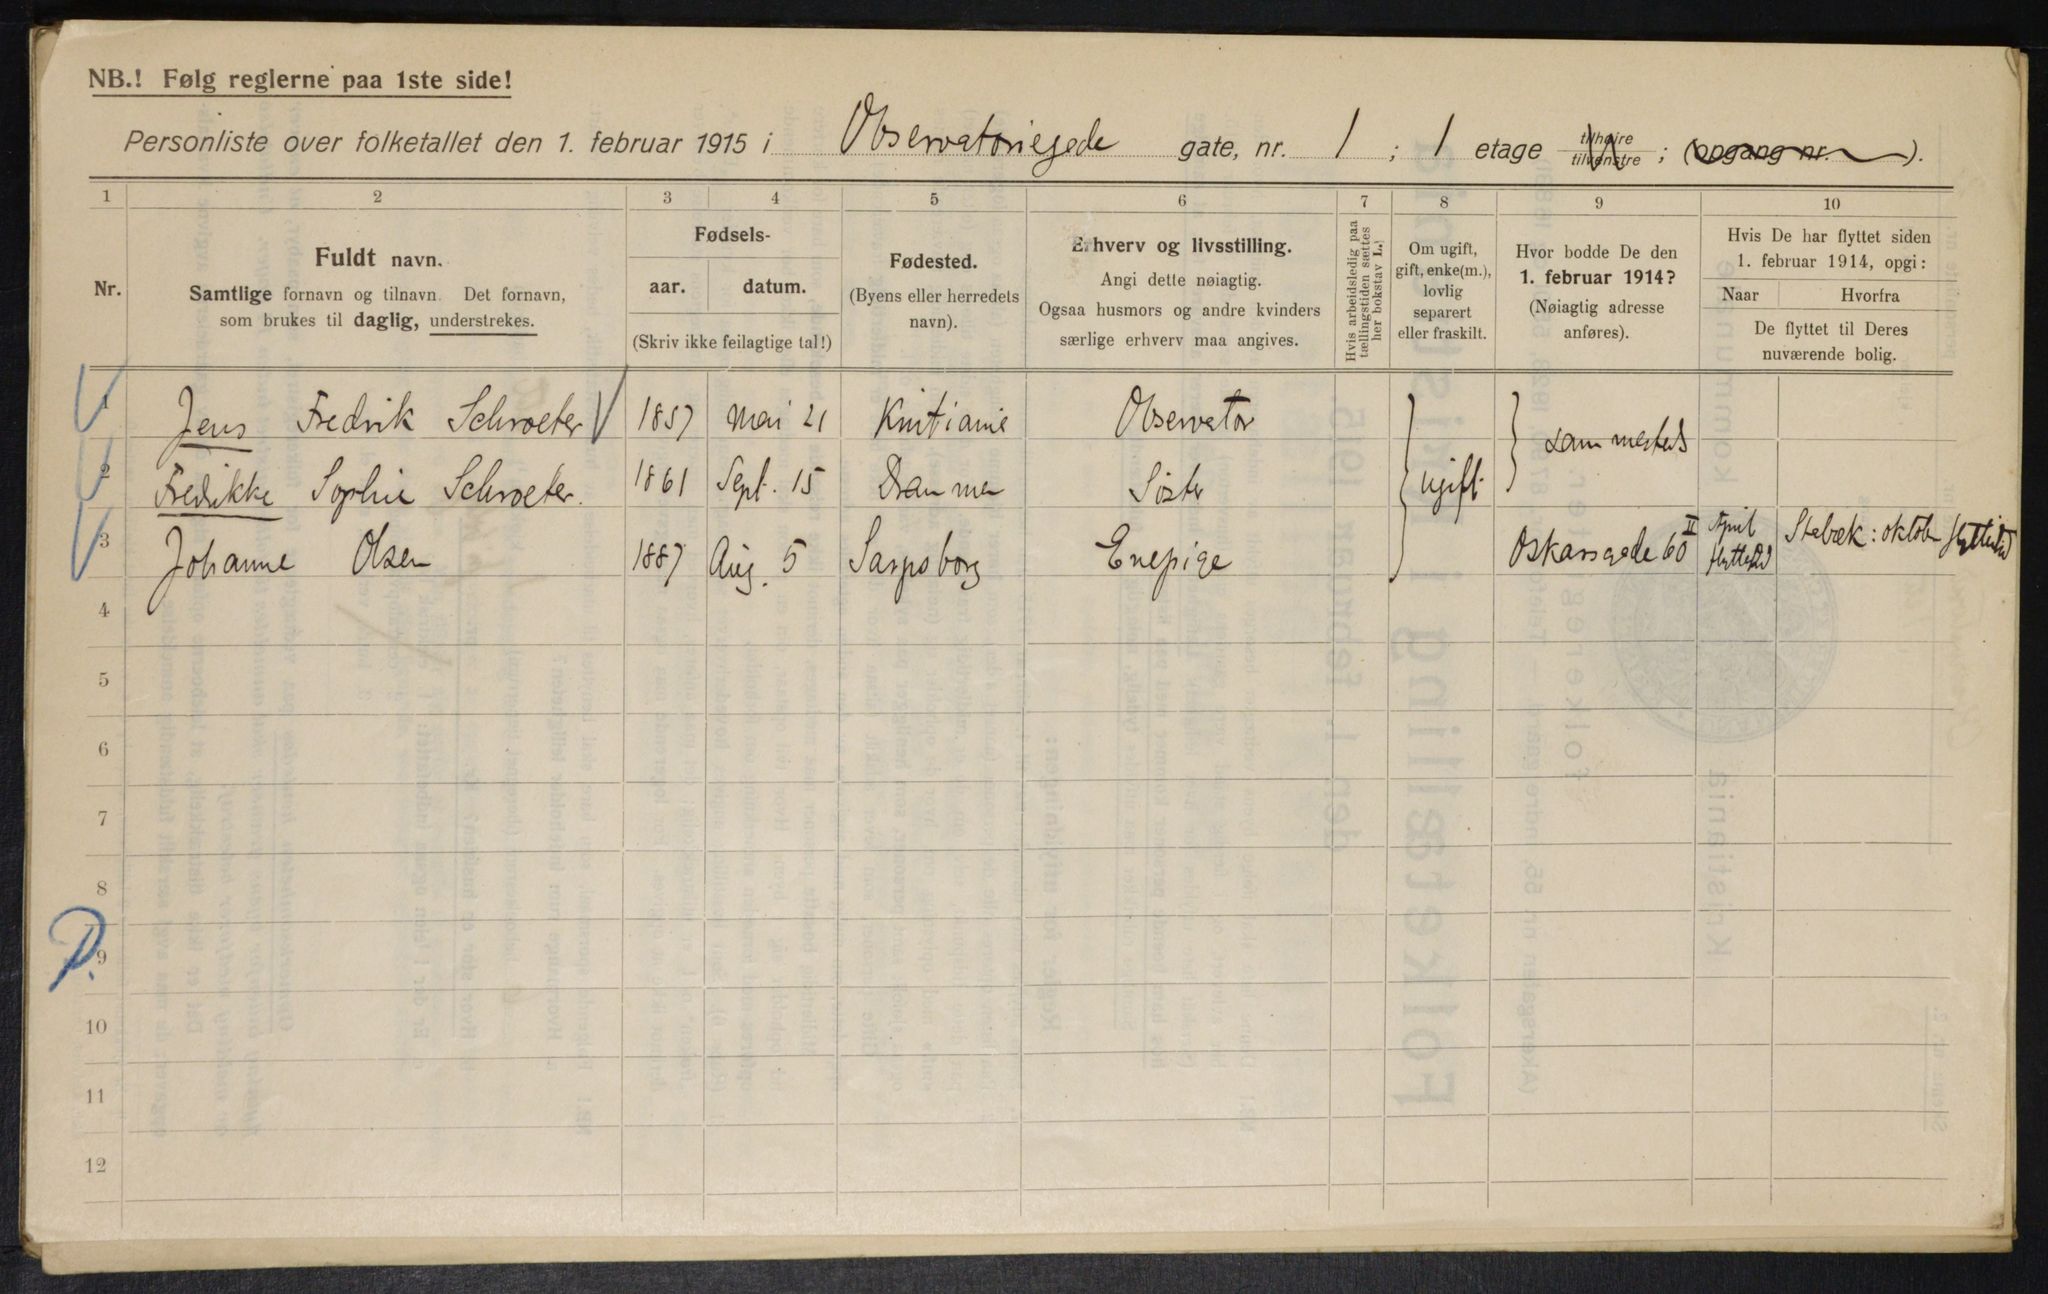 NB.! Følg reglerne paa 1ste side!
Personliste over folketallet den 1. februar 1915 i Observatoriegade gate, nr. 1 ; 1 etage tilhøire tilvenstre ; (opgang nr. ).
1 2 3 4 5 6 7 8 9 10
Nr.
Fuldt navn.
Samtlige fornavn og tilnavn. Det fornavn,
som brukes til daglig, understrekes.
Fødsels-
aar. datum.
(Skriv ikke feilagtige tal!)
Fødested.
(Byens eller herredets
navn).
Erhverv og livsstilling.
Angi dette nøiagtig.
Ogsaa husmors og andre kvinders
særlige erhverv maa angives.
Hvis arbeidsledig paa
tællingstiden sættes
her bokstav L.
Om ugift,
gift, enke(m.),
lovlig
separert
eller fraskilt.
Hvor bodde De den
1. februar 1914?
(Nøiagtig adresse
anføres).
Hvis De har flyttet siden
1. februar 1914, opgi:
Naar Hvorfra
De flyttet til Deres
nuværende bolig.
1 Jens Fredrik Schroeter 1857 Mai 21 Kristiania Observator
sammesteds
2 Fredrikke Sophie Schroeter. 1861 Sept. 15 Drammen Söster ugift
3 Johanne Olsen 1887 Aug. 5 Sarpsborg Enepige Oskarsgade 60 II April flyttetid Stabæk: oktober flyttetid
4
5
6
7
8
9
10
11
12